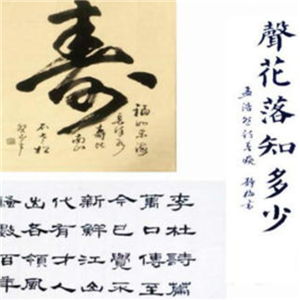 寿
福如东海
長流水
壽比
南山
不老松
聲花落知多少
孟浩然诗春晓
李杜詩篇
萬口傳至
今已覺不
新鮮江山
代有才人
出各領風
騷數百年